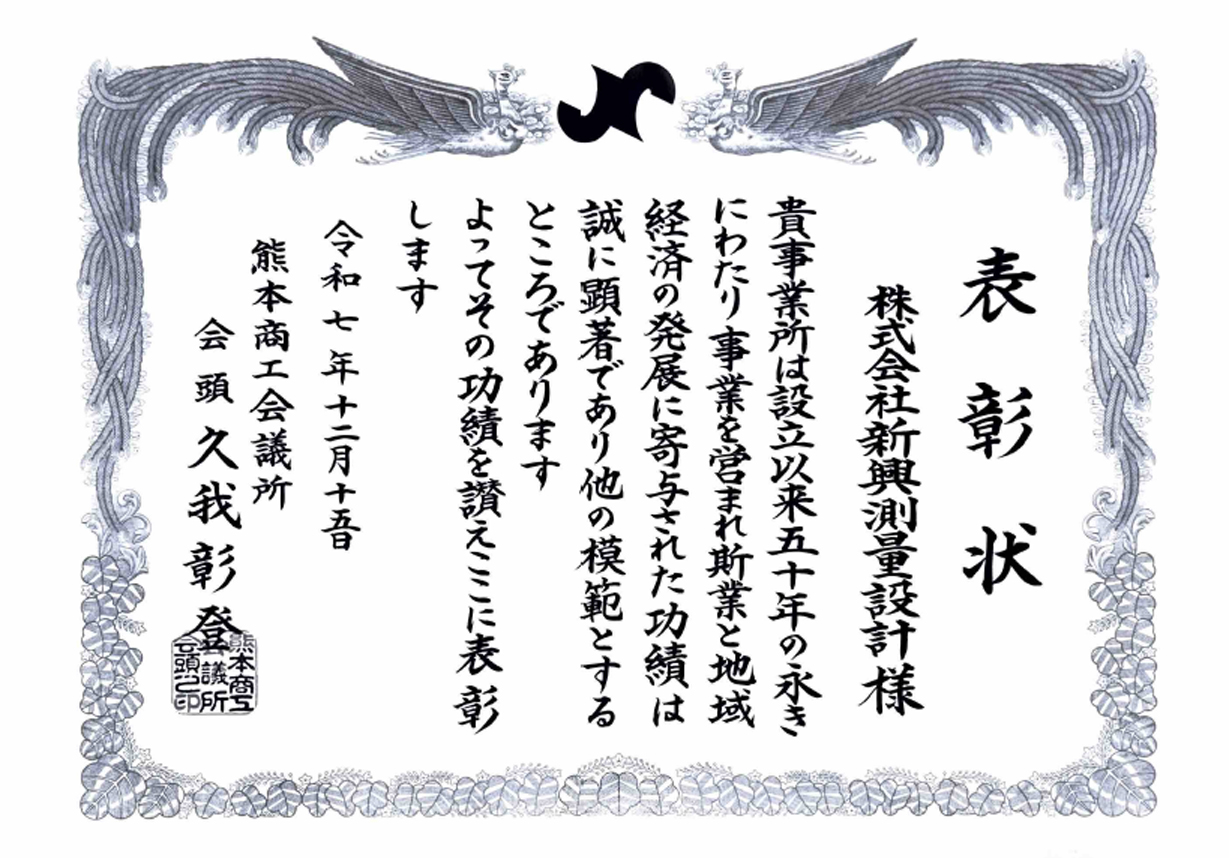 表彰状
株式会社新興測量設計様
貴事業所は設立以来五十年の永き
にわたり事業を営まれ斯業と地域
経済の発展に寄与された功績は
誠に顕著であり他の模範とする
ところであります
よってその功績を讃えここに表彰
します
令和七年十二月十五日
熊本商工会議所
会頭久我彰登
熊本商工
会議所
会頭之印